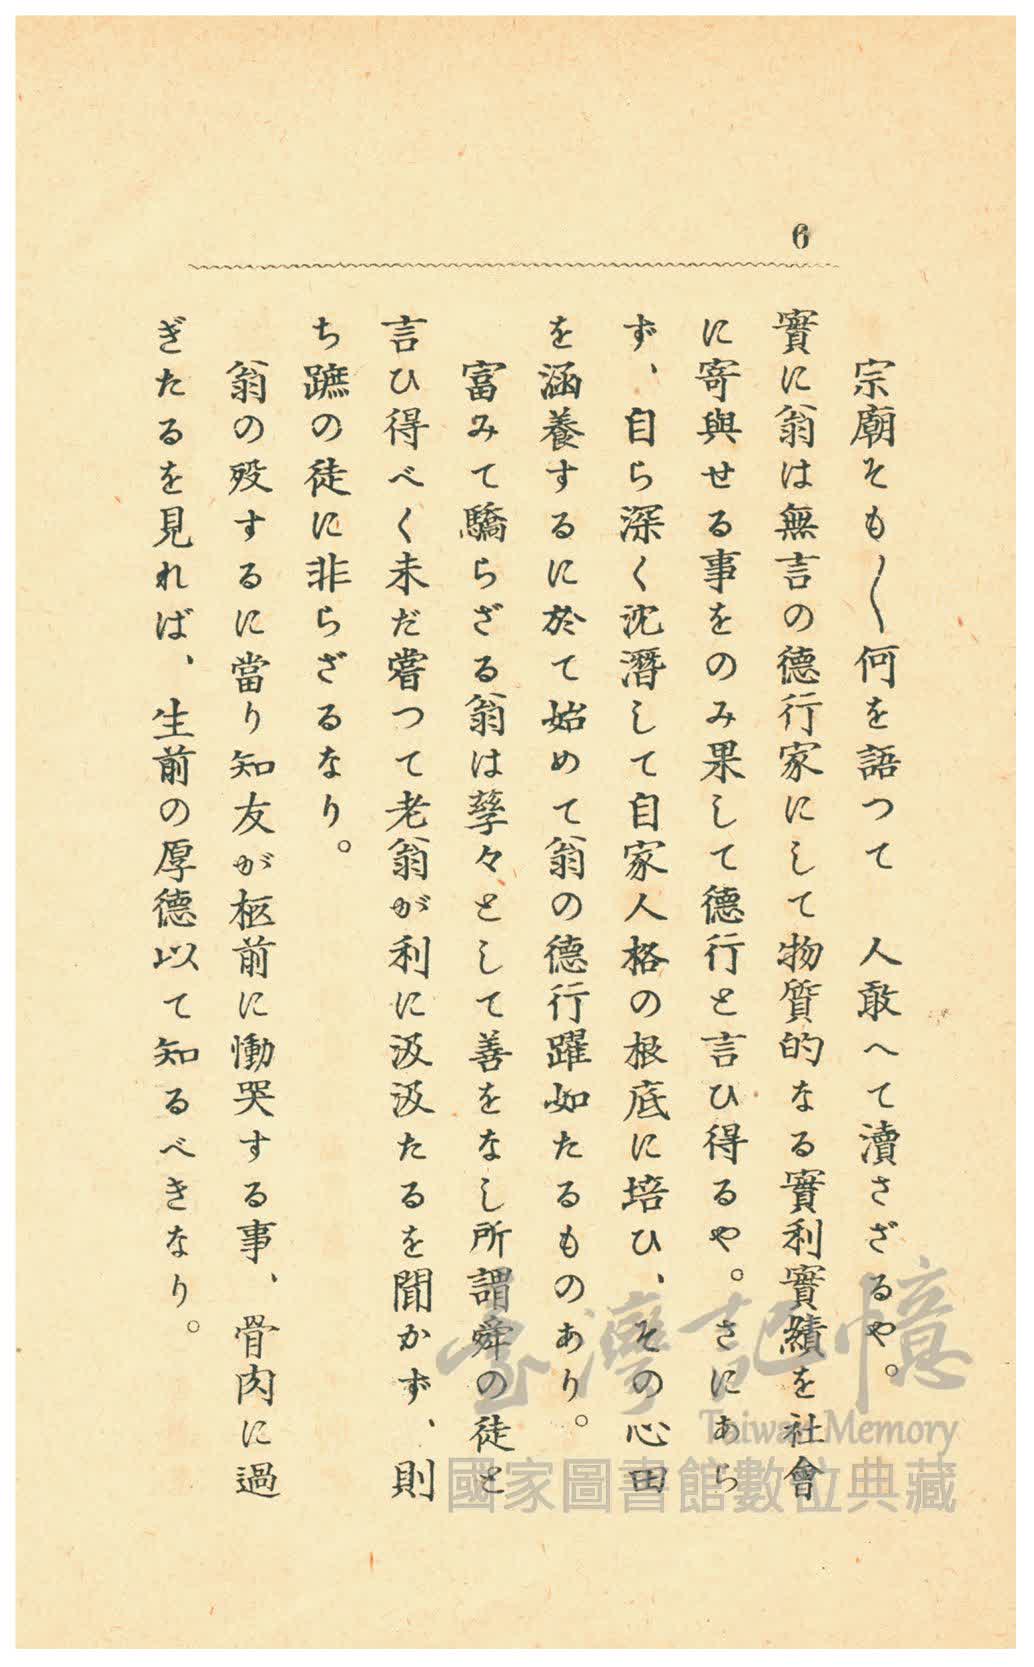 6
宗廟そも〱何を語つて　人敢へて瀆さざるや。
實に翁は無言の德行家にして物質的なる實利實績を社會
に寄與せる事をのみ果して德行と言ひ得るや。さにあら
ず、自ら深く沈潛して自家人格の根底に培ひ、その心田
を涵養するに於て始めて翁の德行躍如たるものあり。
富みて驕らざる翁は孳々として善をなし所謂舜の徒と
言ひ得べく未だ嘗つて老翁が利に汲汲たるを聞かず、則
ち蹠の徒に非らざるなり。
翁の歿するに當り知友が柩前に慟哭する事、骨肉に過
ぎたるを見れば、生前の厚德以て知るべきなり。
臺灣記憶
Taiwan Memory
國家圖書館數位典藏